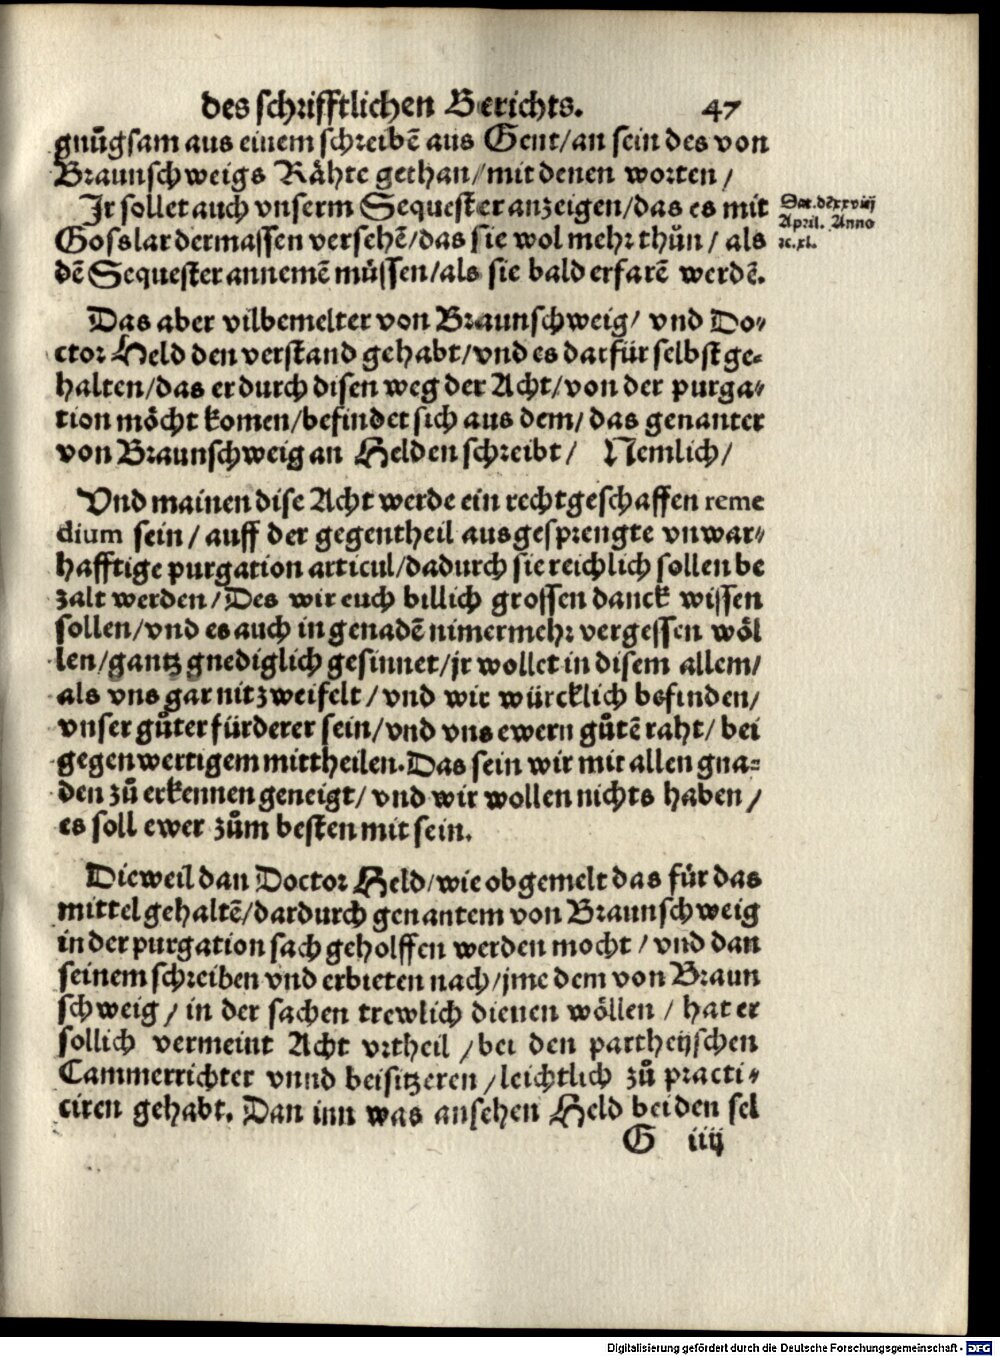 des schrifftlichen Berichts. 47
gnůgsam aus einem schreibẽ aus Gent/an sein des von
Braunschweigs Rähte gethan/mit denen worten/
Jr sollet auch vnserm Sequester anzeigen/das es mit
Gosslar dermassen versehẽ/das sie wol mehr thůn/ als
dẽ Sequester annemẽ müssen/als sie bald erfarẽ werdẽ.
Dat. dẽ xxviij
April. Anno
ꝛc. xl.
Das aber vilbemelter von Braunschweig/ vnd Do⸗
ctor Held den verstand gehabt/vnd es darfür selbst ge⸗
halten/das er durch disen weg der Acht/von der purga⸗
tion möcht komen/befindet sich aus dem/ das genanter
von Braunschweig an Helden schreibt/ Nemlich/
Vnd mainen dise Acht werde ein rechtgeschaffen reme
dium sein/ auff der gegentheil ausgesprengte vnwar⸗
hafftige purgation articul/dadurch sie reichlich sollen be
zalt werden/Des wir euch billich grossen danck wissen
sollen/vnd es auch in genadẽ nimermehr vergessen wöl
len/gantz gnediglich gesinnet/jr wollet in disem allem/
als vns gar nit zweifelt/vnd wir würcklich befinden/
vnser gůter fürderer sein/vnd vns ewern gůtẽ raht/ bei
gegenwertigem mittheilen. Das sein wir mit allen gna⸗
den zů erkennen geneigt/ vnd wir wollen nichts haben/
es soll ewer zům besten mit sein.
Dieweil dan Doctor Held/wie obgemelt das für das
mittel gehaltẽ/dardurch genantem von Braunschweig
in der purgation sach geholffen werden mocht/vnd dan
seinem schreiben vnd erbieten nach/jme dem von Braun
schweig/ in der sachen trewlich dienen wöllen/ hat er
sollich vermeint Acht vrtheil/bei den partheijschen
Cammerrichter vnnd beisitzeren/leichtlich zů practi⸗
ciren gehabt. Dan inn was ansehen Held bei den sel
G iiij
Digitalisierung gefördert durch die Deutsche Forschungsgemeinschaft - DFG